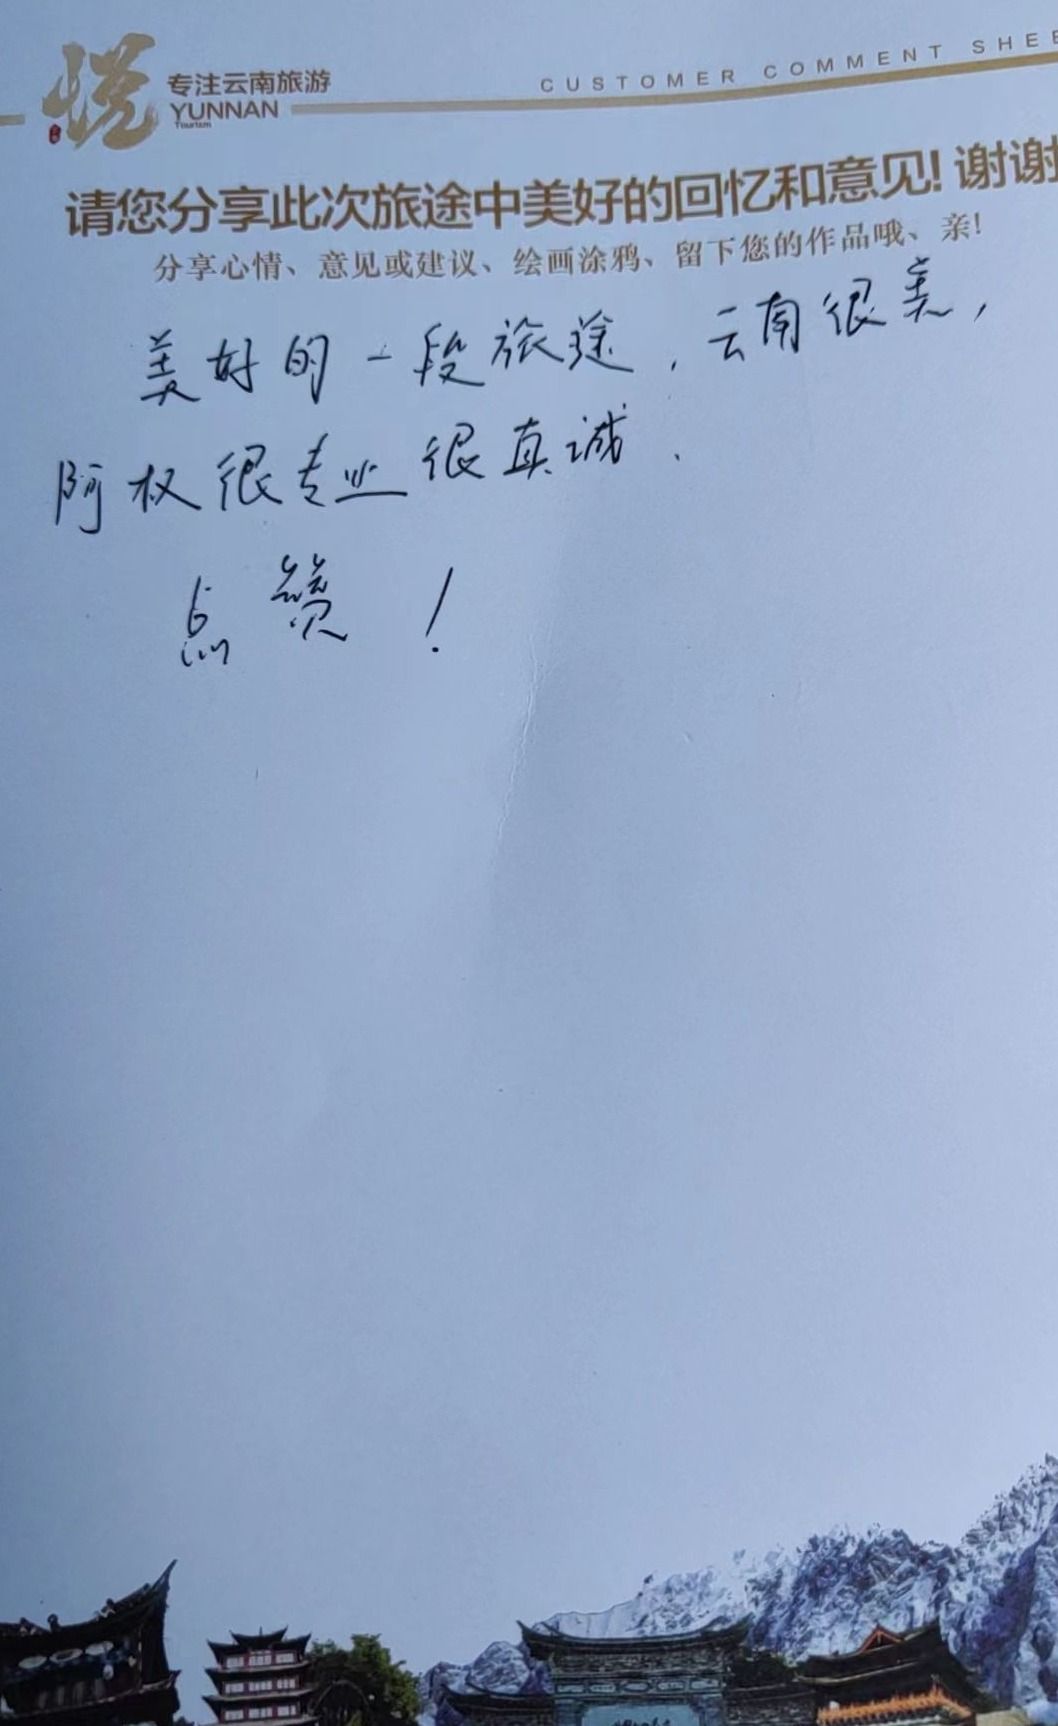 悦
专注云南旅游
YUNNAN
Tourism
CUSTOMER COMMENT SHEE
请您分享此次旅途中美好的回忆和意见!谢谢
分享心情、意见或建议、绘画涂鸦、留下您的作品哦、亲!
美好的一段旅途，云南很美，
阿权很专业很真诚.
点赞！